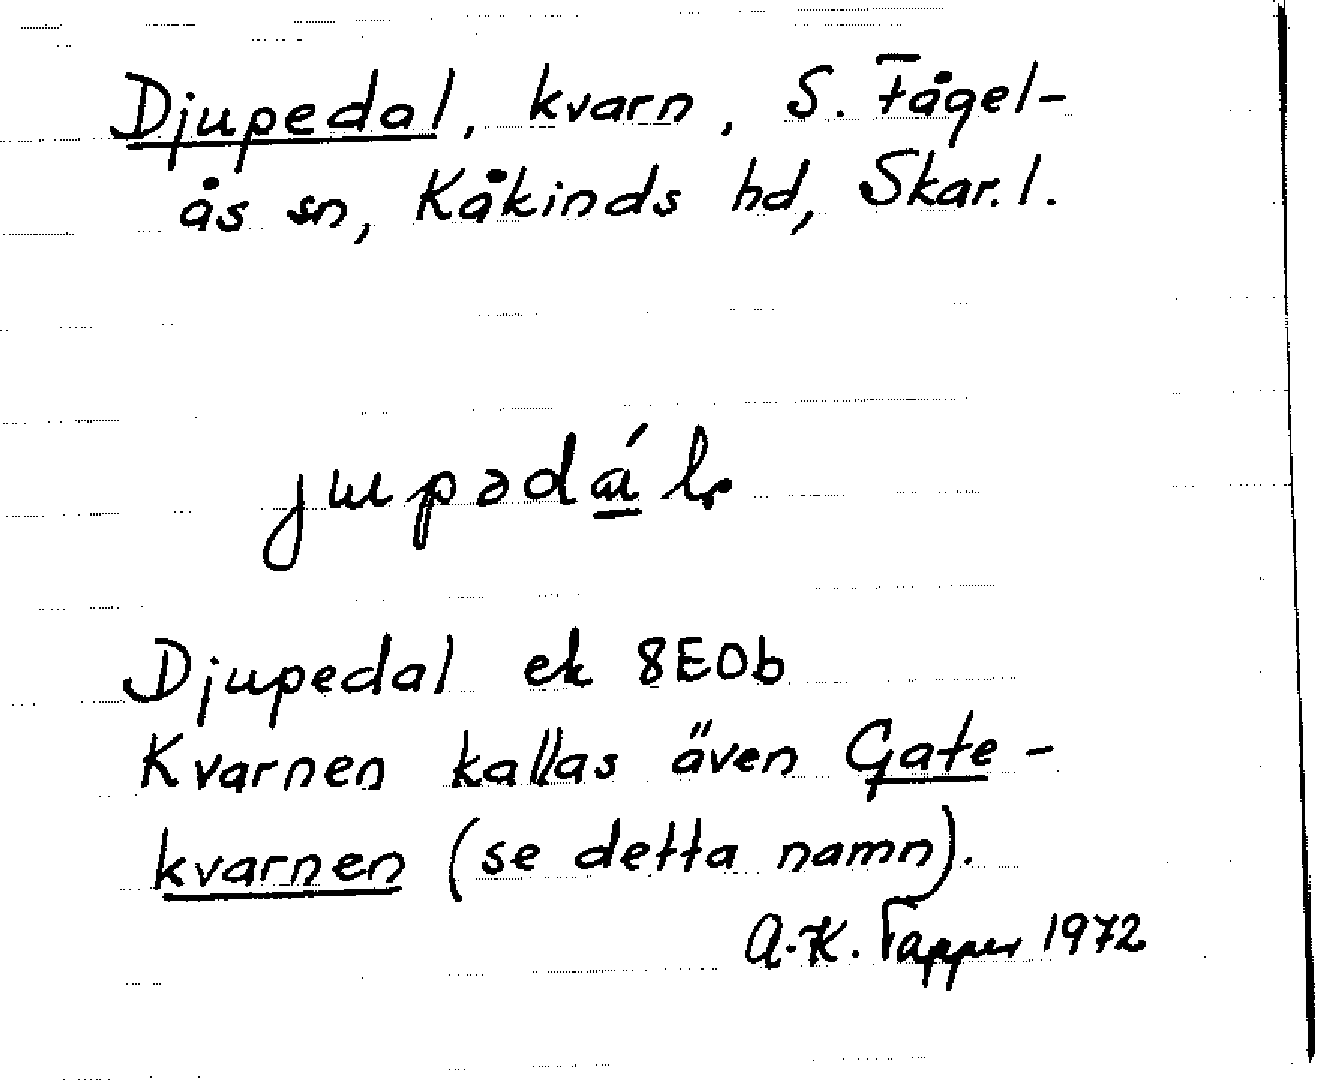 Djupedal, kvarn, S. Fågel-
ås sn, Kåkinds hd, Skar. l.
Djupedal ek 8E0b
Kvarnen kallas även Gate-
kvarnen (se detta namn).
A.-K. Tapper 1972